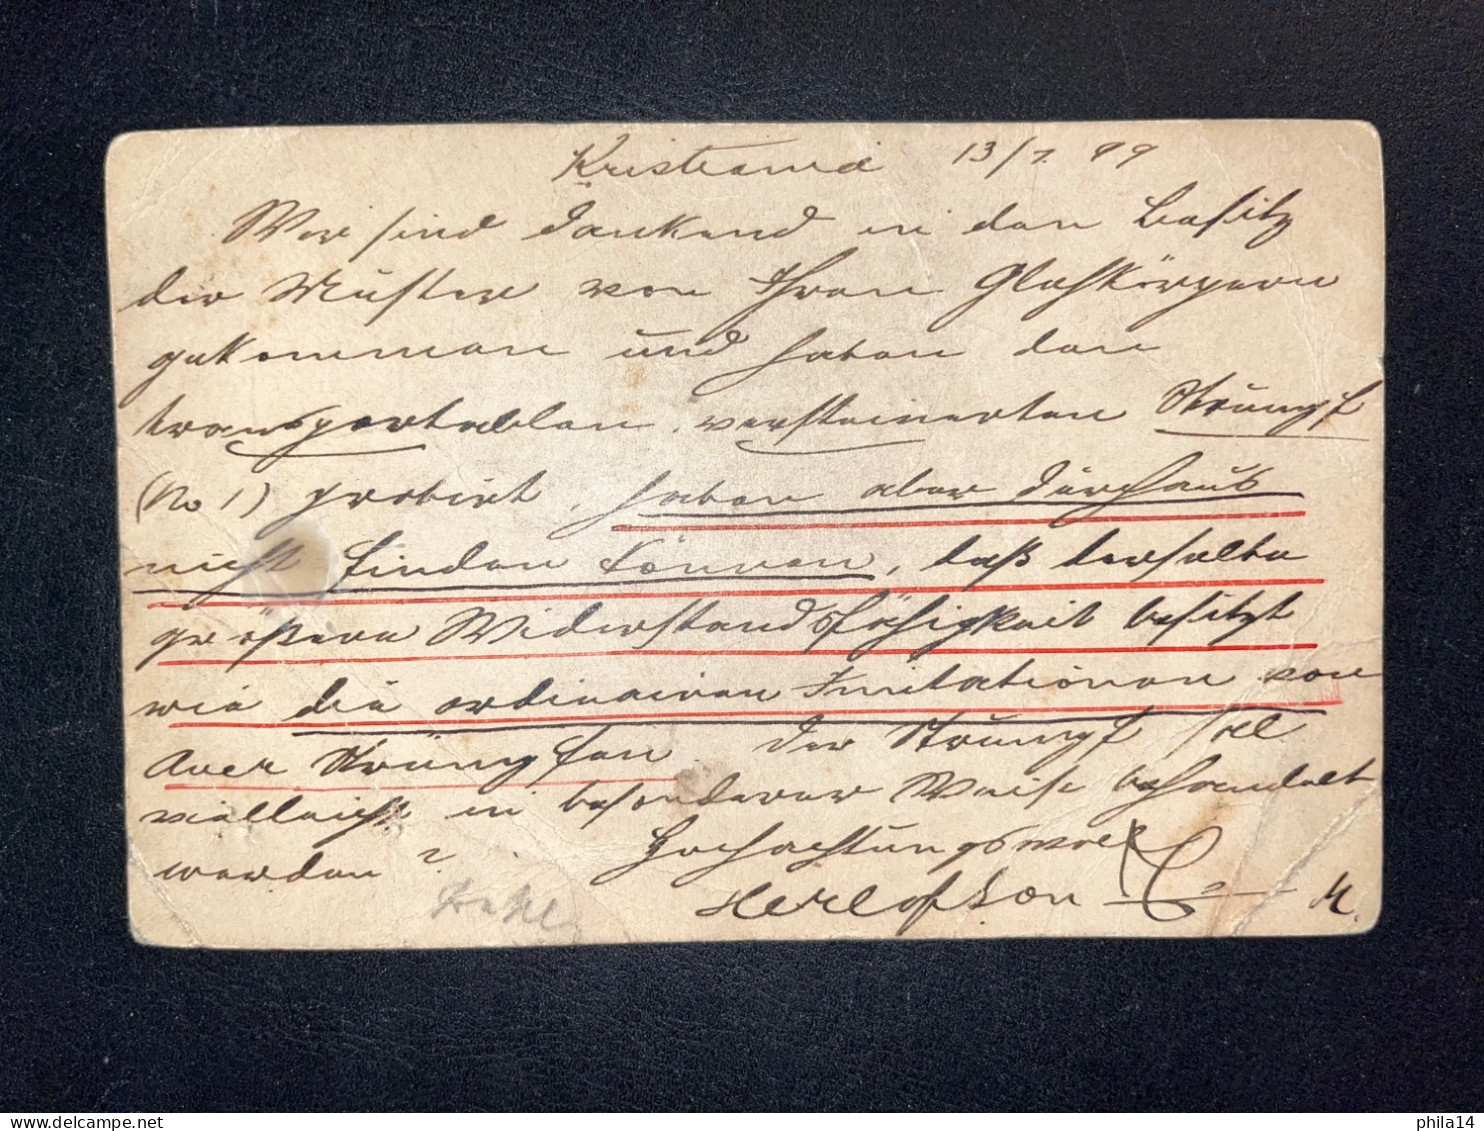 Kristiania 13/7. 99
Wir sind dankend in den Besitz
der Muster von Ihren Glühkörpern
gekommen und haben den
transportablen, versteinerten Strumpf
(No 1) probirt, haben aber durchaus
nicht finden können, daß derselbe
größere Widerstandsfähigkeit besitzt
wie die ordinairen Imitationen von
Auer Strümpfen. Der Strumpf soll
vielleicht in besonderer Weise behandelt
werden?
Hochachtungsvoll
Herlofson
M.
phila14